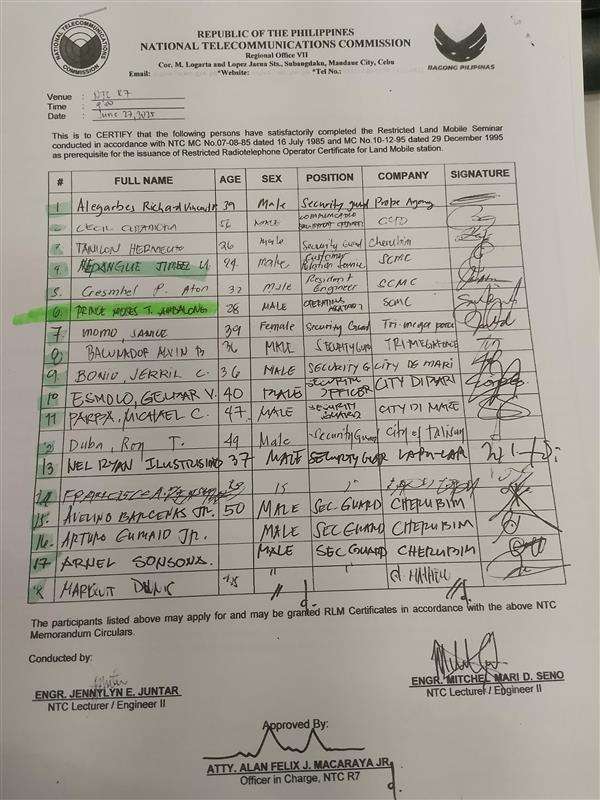 NATIONAL TELECOMMUNICATIONS COMMISSION
REPUBLIC OF THE PHILIPPINES
NATIONAL TELECOMMUNICATIONS COMMISSION
Regional Office VII
Cor. M. Logarta and Lopez Jaena Sts., Subangdaku, Mandaue City, Cebu
Email: *Website: *Tel No.:
BAGONG PILIPINAS
Venue : NTC R7
Time :
Date : June 27, 2025
This is to CERTIFY that the following persons have satisfactorily completed the Restricted Land Mobile Seminar
conducted in accordance with NTC MC No.07-08-85 dated 16 July 1985 and MC No.10-12-95 dated 29 December 1995
as prerequisite for the issuance of Restricted Radiotelephone Operator Certificate for Land Mobile station.
# FULL NAME AGE SEX POSITION COMPANY SIGNATURE
1 Alegarbes Richard 39 Male Security guard Probe Agency
2 CECIL MALE
3 TANILON 36 Male Security Guard Cherubim
4 JIMBEL 24 Male Customer SCMC
5. Gesmhel P. Aton 32 Male Resident Engineer SCMC
6. PRINCE MOSES T. 28 MALE SCMC
7 MOMO, JANICE 39 Female Security Guard Tri-mega
8 ALVIN B 36 MALE SECURITY GUARD TRIMEGAFORCE
9 BONIO, JERRIL C. 36 MALE SECURITY G CITY DI MARI
10 ESMOLO, GELMAR V. 40 MALE SECURITY OFFICER CITY DI MARI
11 MICHAEL C. 47 MALE SECURITY GUARD CITY DI MARE
12 Duba, Roy T. 49 Male Security Guard City of Talisay
13 NEL RYAN ILUSTRISIMO 37 MALE SECURITY GUARD LAPU-LAP
14
15. AVELINO BARCENAS JR. 50 MALE SEC. GUARD CHERUBIM
16. ARTURO GUMAID JR. MALE SEC GUARD CHERUBIM
17 ARNEL SONSONA. MALE SEC GUARD CHERUBIM
18 " "
The participants listed above may apply for and may be granted RLM Certificates in accordance with the above NTC
Memorandum Circulars.
Conducted by:
ENGR. JENNYLYN E. JUNTAR
NTC Lecturer / Engineer II
ENGR. MITCHEL MARI D. SENO
NTC Lecturer / Engineer II
Approved By:
ATTY. ALAN FELIX J. MACARAYA JR.
Officer in Charge, NTC R7